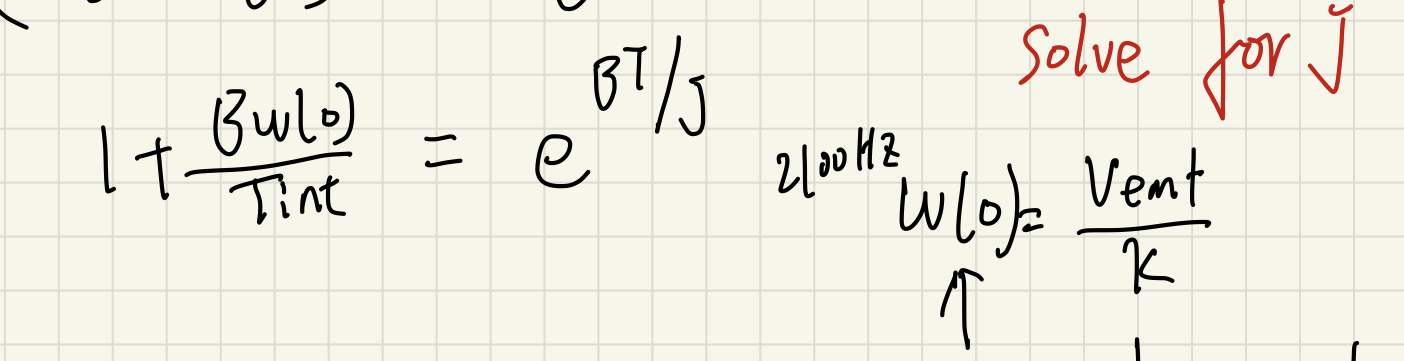 Solve for J
1 + Bω(0)/Tint = e^BT/J
2100Hz ω(0) = Vemt/K